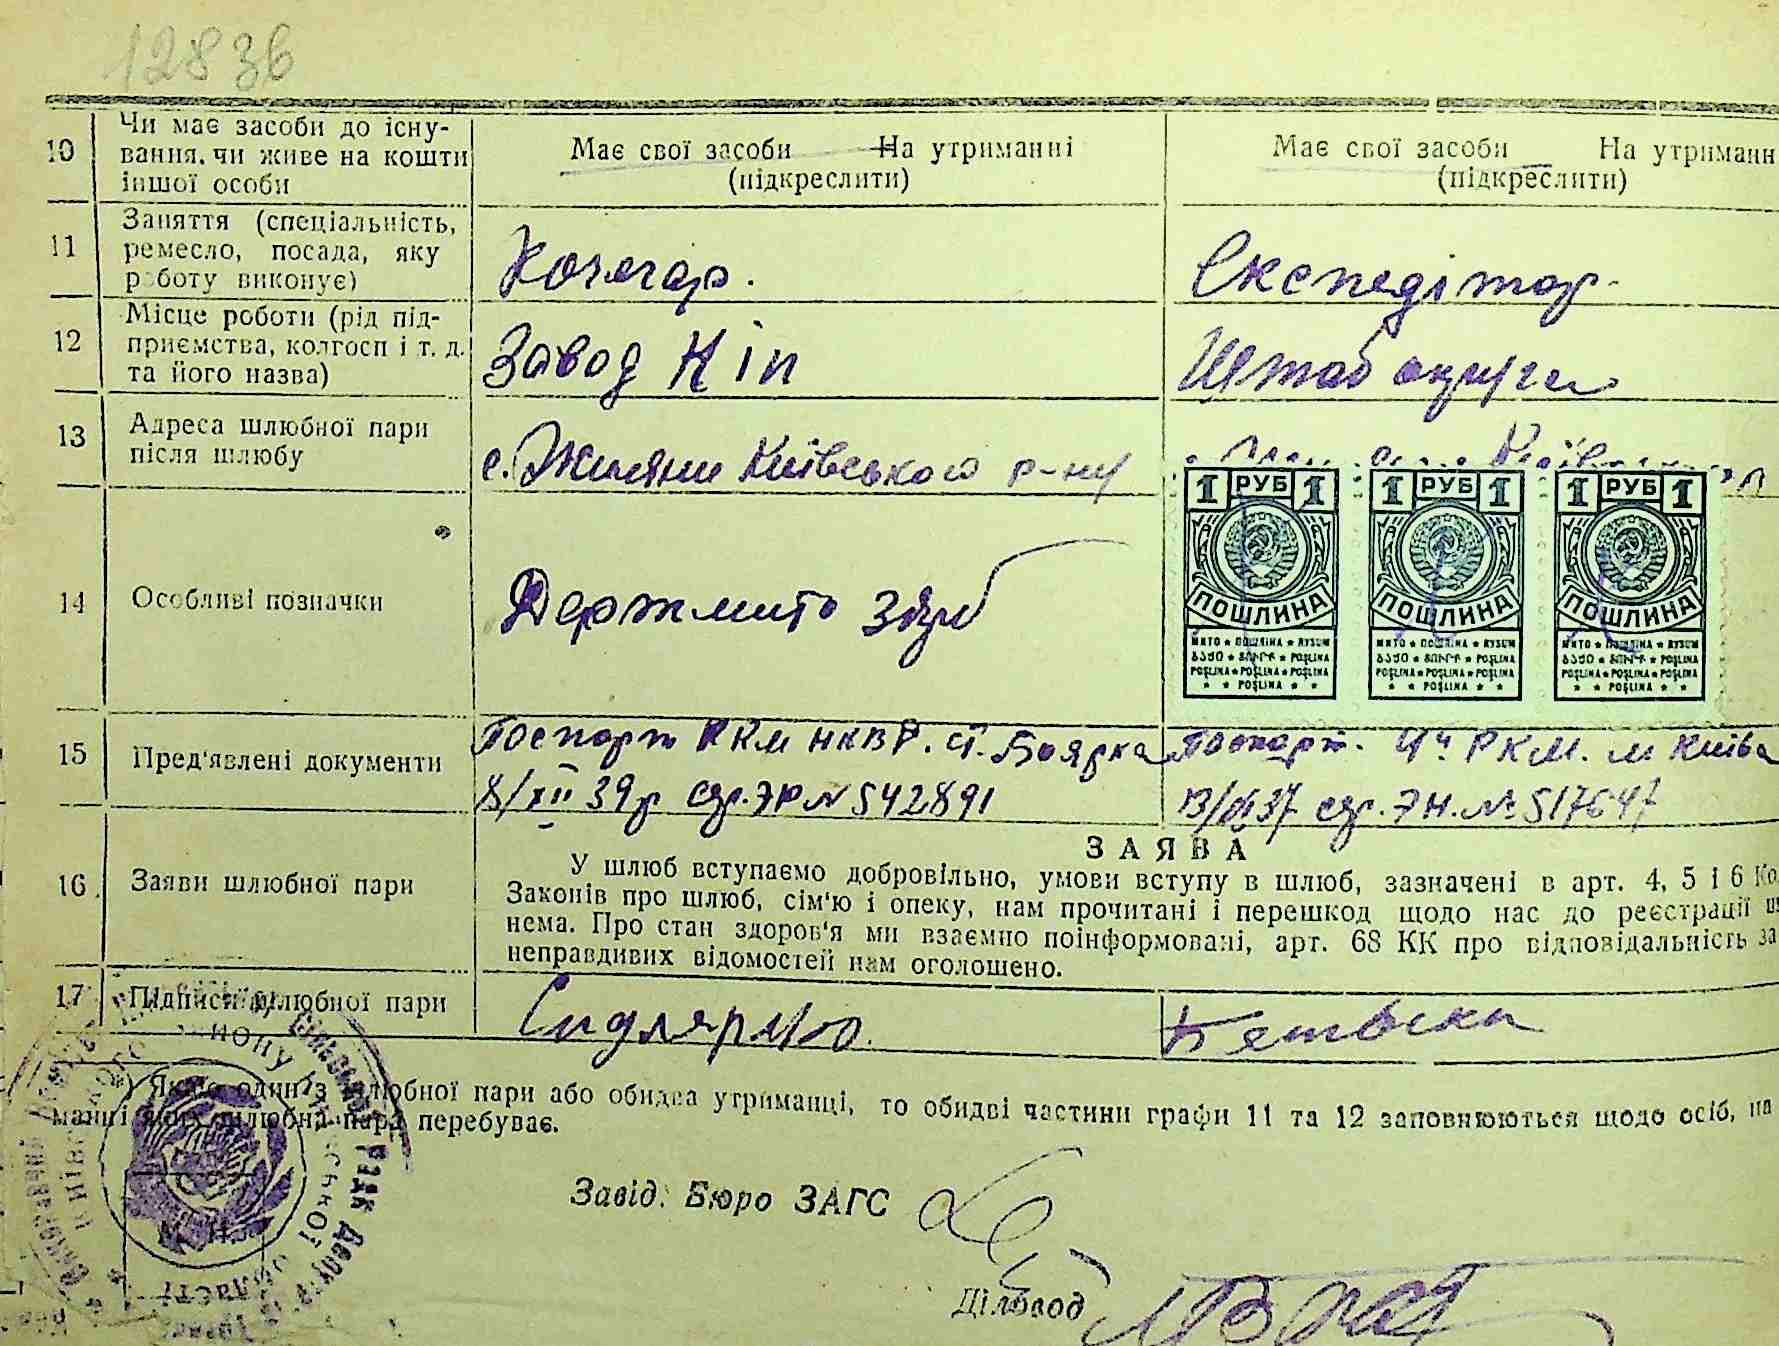 12836
10 Чи має засоби до існу-
вання, чи живе на кошти
іншої особи
Має свої засоби На утриманні
(підкреслити)
Має свої засоби На утриманн
(підкреслити)
11 Заняття (спеціальність,
ремесло, посада, яку
роботу виконує)
Кочегар.
Експедітор.
12 Місце роботи (рід під-
приємства, колгосп і т. д.
та його назва)
Завод Кіп
Штаб округа
13 Адреса шлюбної пари
після шлюбу
с. Жиляни Київського р-ну
1 РУБ 1
1 РУБ 1
1 РУБ 1
ПОШЛИНА
ПОШЛИНА
ПОШЛИНА
14 Особливі позначки
Держмито 3 крб
15 Пред'явлені документи
Паспорт РКМ НКВД. ст. Боярка
8/XII 39р сер. ЭР № 542891
Паспорт. 9ч РКМ. м Києва
13/ 37 сер. ЭН. № 517647
ЗАЯВА
16 Заяви шлюбної пари
У шлюб вступаємо добровільно, умови вступу в шлюб, зазначені в арт. 4, 5 і 6 Ко
Законів про шлюб, сім'ю і опеку, нам прочитані і перешкод щодо нас до реєстрації ш
нема. Про стан здоров'я ми взаємно поінформовані, арт. 68 КК про відповідальність за
неправдивих відомостей нам оголошено.
17 Підписи шлюбної пари
*) Якщо один із шлюбної пари або обидва утриманці, то обидві частини графи 11 та 12 заповнюються щодо осіб, на
манні яких шлюбна пара перебуває.
Завід. Бюро ЗАГС
Діловод